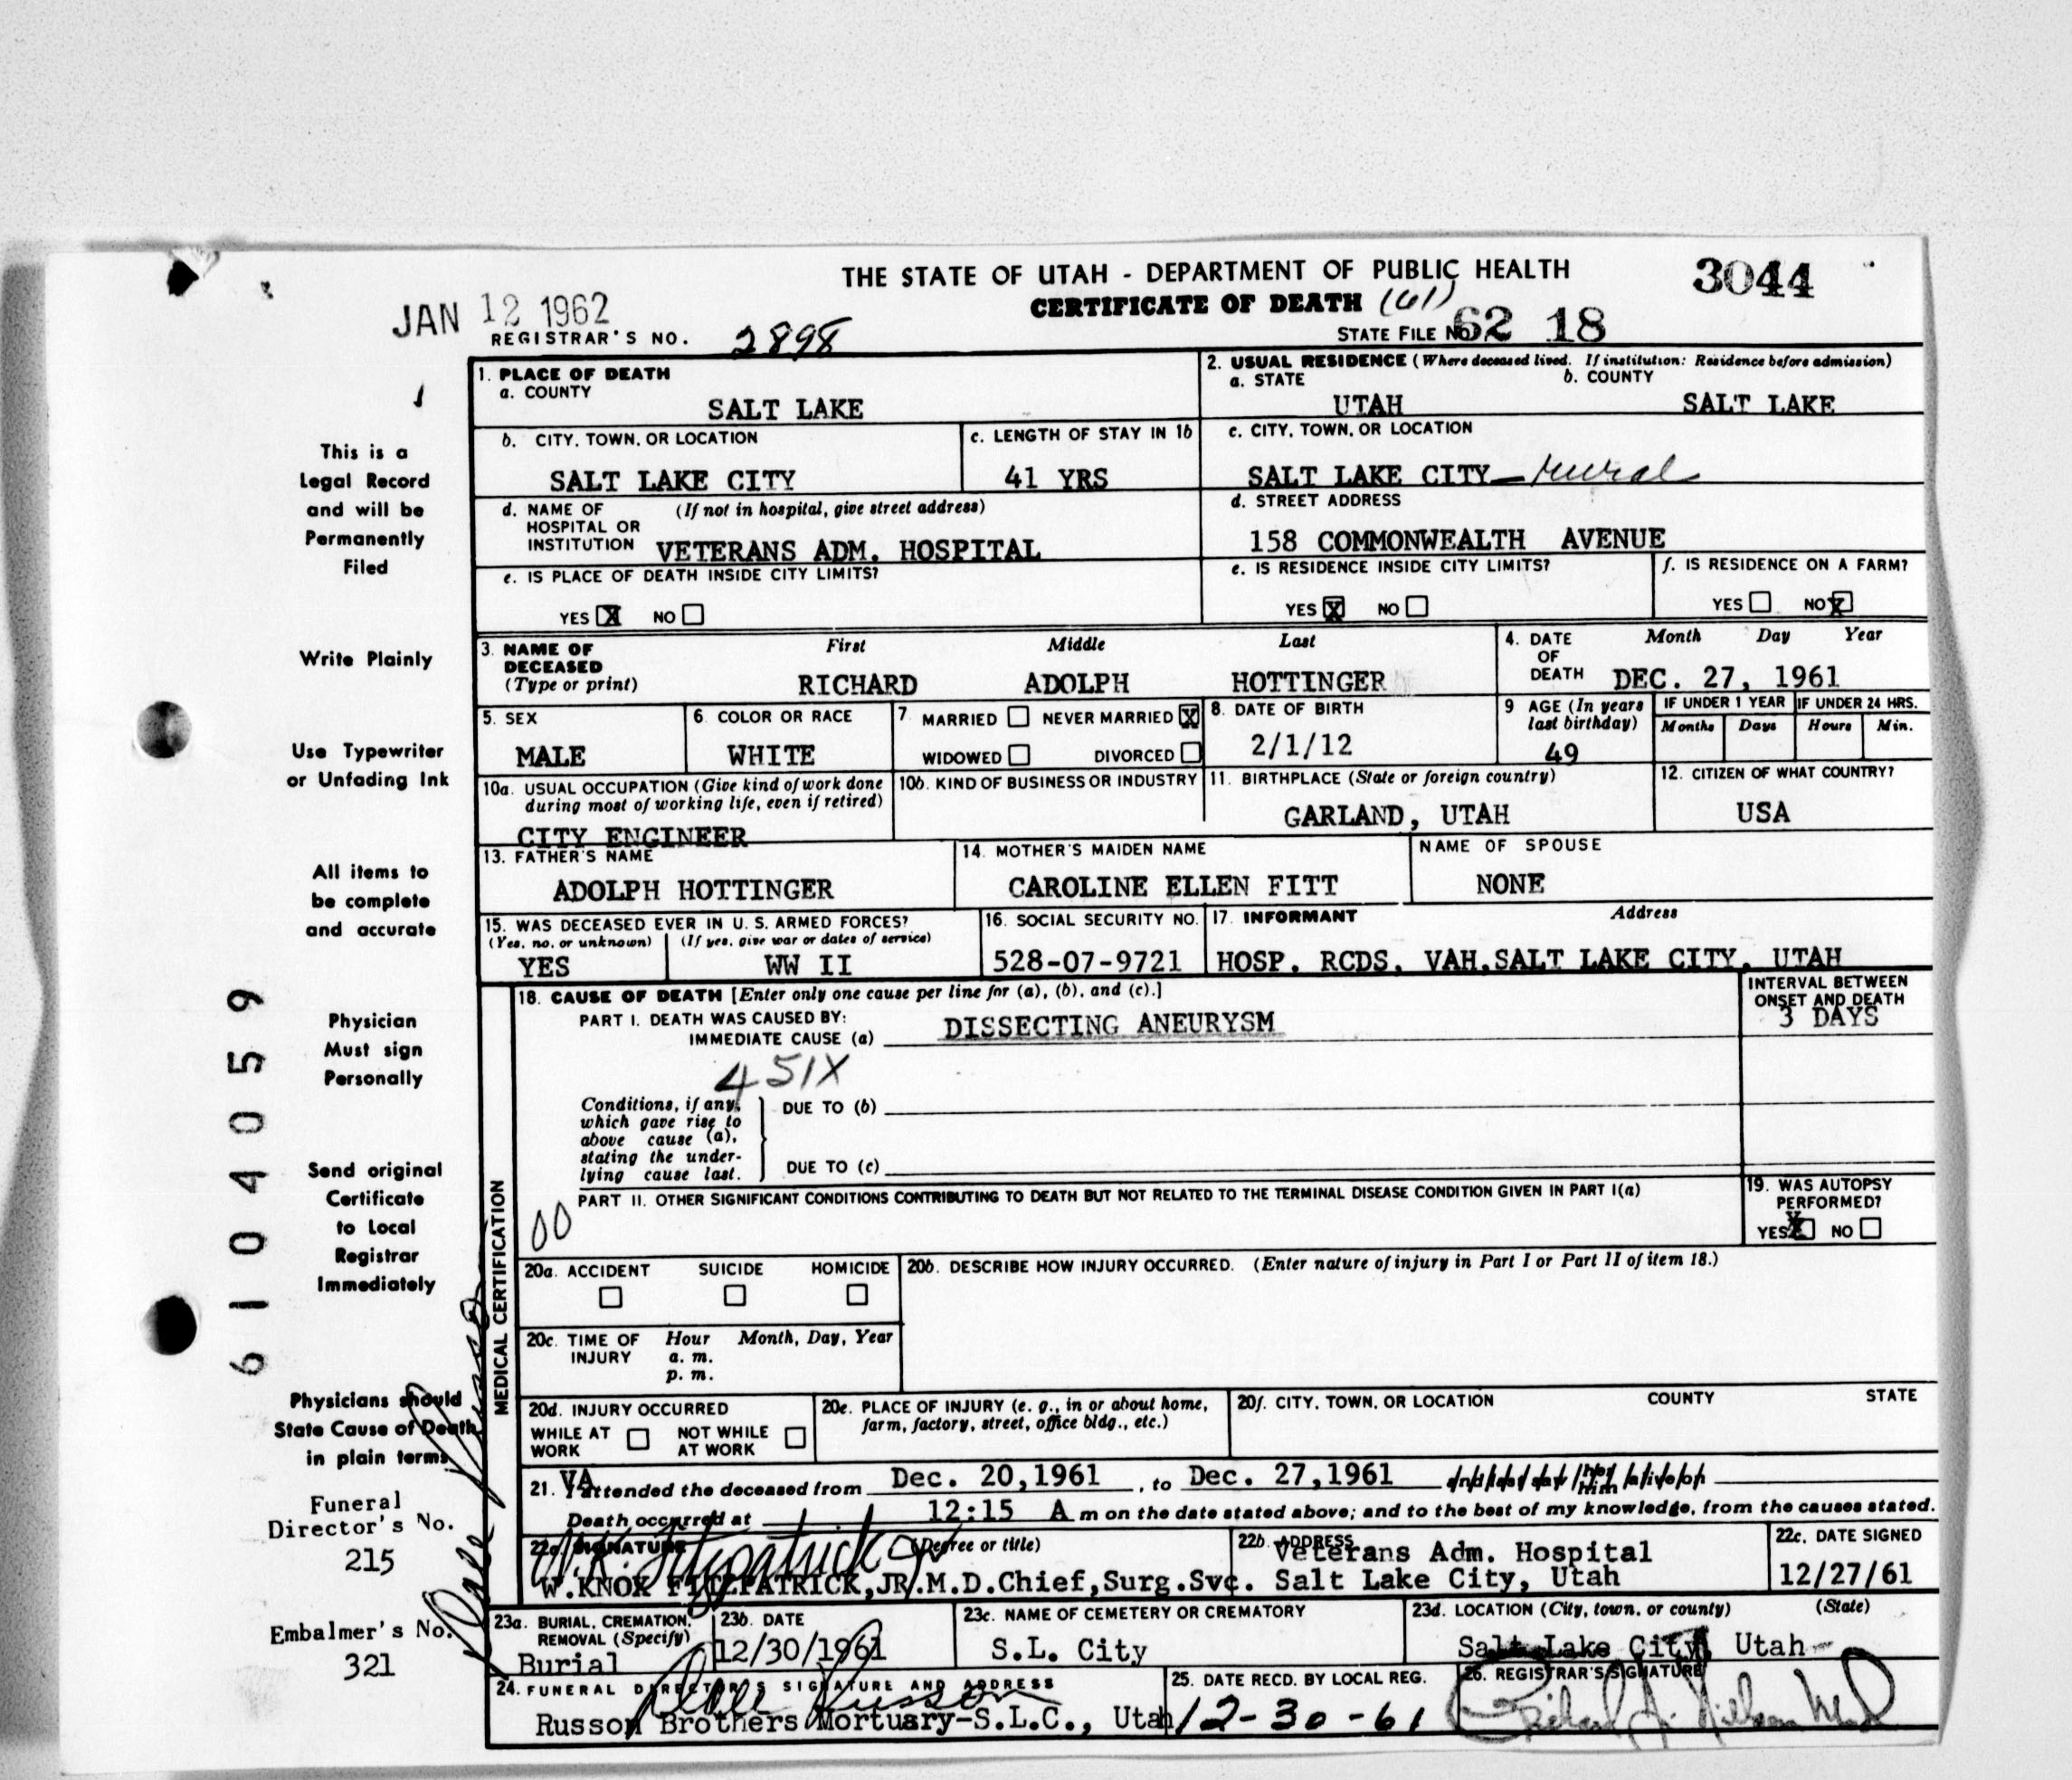 THE STATE OF UTAH - DEPARTMENT OF PUBLIC HEALTH
3044
JAN 12 1962
CERTIFICATE OF DEATH (61)
REGISTRAR'S NO. 2898
STATE FILE NO. 62 18
1. PLACE OF DEATH
a. COUNTY
SALT LAKE
2. USUAL RESIDENCE (Where deceased lived. If institution: Residence before admission)
a. STATE b. COUNTY
UTAH SALT LAKE
b. CITY, TOWN, OR LOCATION
SALT LAKE CITY
c. LENGTH OF STAY IN 1b
41 YRS
c. CITY, TOWN, OR LOCATION
SALT LAKE CITY - rural
d. NAME OF (If not in hospital, give street address)
HOSPITAL OR
INSTITUTION VETERANS ADM. HOSPITAL
d. STREET ADDRESS
158 COMMONWEALTH AVENUE
e. IS PLACE OF DEATH INSIDE CITY LIMITS?
YES X NO
e. IS RESIDENCE INSIDE CITY LIMITS?
YES X NO
f. IS RESIDENCE ON A FARM?
YES NO X
3. NAME OF First Middle Last
DECEASED
(Type or print) RICHARD ADOLPH HOTTINGER
4. DATE Month Day Year
OF
DEATH DEC. 27, 1961
5. SEX
MALE
6. COLOR OR RACE
WHITE
7. MARRIED NEVER MARRIED X
WIDOWED DIVORCED
8. DATE OF BIRTH
2/1/12
9 AGE (In years
last birthday)
49
IF UNDER 1 YEAR IF UNDER 24 HRS.
Months Days Hours Min.
10a. USUAL OCCUPATION (Give kind of work done
during most of working life, even if retired)
CITY ENGINEER
10b. KIND OF BUSINESS OR INDUSTRY
11. BIRTHPLACE (State or foreign country)
GARLAND, UTAH
12. CITIZEN OF WHAT COUNTRY?
USA
13. FATHER'S NAME
ADOLPH HOTTINGER
14. MOTHER'S MAIDEN NAME
CAROLINE ELLEN FITT
NAME OF SPOUSE
NONE
15. WAS DECEASED EVER IN U. S. ARMED FORCES?
(Yes, no, or unknown) (If yes, give war or dates of service)
YES WW II
16. SOCIAL SECURITY NO.
528-07-9721
17. INFORMANT Address
HOSP. RCDS. VAH.SALT LAKE CITY, UTAH
MEDICAL CERTIFICATION
18. CAUSE OF DEATH [Enter only one cause per line for (a), (b), and (c).]
PART I. DEATH WAS CAUSED BY:
IMMEDIATE CAUSE (a) DISSECTING ANEURYSM
INTERVAL BETWEEN
ONSET AND DEATH
3 DAYS
451X
Conditions, if any,
which gave rise to
above cause (a),
stating the under-
lying cause last.
DUE TO (b)
DUE TO (c)
PART II. OTHER SIGNIFICANT CONDITIONS CONTRIBUTING TO DEATH BUT NOT RELATED TO THE TERMINAL DISEASE CONDITION GIVEN IN PART I(a)
00
19. WAS AUTOPSY
PERFORMED?
YES X NO
20a. ACCIDENT SUICIDE HOMICIDE
20b. DESCRIBE HOW INJURY OCCURRED. (Enter nature of injury in Part I or Part II of item 18.)
20c. TIME OF Hour Month, Day, Year
INJURY a. m.
p. m.
20d. INJURY OCCURRED
WHILE AT WORK NOT WHILE AT WORK
20e. PLACE OF INJURY (e. g., in or about home,
farm, factory, street, office bldg., etc.)
20f. CITY, TOWN, OR LOCATION COUNTY STATE
21. VA attended the deceased from Dec. 20,1961, to Dec. 27,1961 and last saw her him alive on
Death occurred at 12:15 A m on the date stated above; and to the best of my knowledge, from the causes stated.
22a. SIGNATURE (Degree or title)
W.K. Fitzpatrick Jr
W.KNOX FITZPATRICK,JR.M.D.Chief,Surg.Svc.
22b. ADDRESS
Veterans Adm. Hospital
Salt Lake City, Utah
22c. DATE SIGNED
12/27/61
23a. BURIAL, CREMATION,
REMOVAL (Specify)
Burial
23b. DATE
12/30/1961
23c. NAME OF CEMETERY OR CREMATORY
S.L. City
23d. LOCATION (City, town, or county) (State)
Salt Lake City, Utah
24. FUNERAL DIRECTOR'S SIGNATURE AND ADDRESS
Dale Russon
Russon Brothers Mortuary-S.L.C., Utah
25. DATE RECD. BY LOCAL REG.
12-30-61
26. REGISTRAR'S SIGNATURE
This is a
Legal Record
and will be
Permanently
Filed
Write Plainly
Use Typewriter
or Unfading Ink
All items to
be complete
and accurate
Physician
Must sign
Personally
Send original
Certificate
to Local
Registrar
Immediately
Physicians should
State Cause of Death
in plain terms
Funeral
Director's No.
215
Embalmer's No.
321
Dale Russon
61 04059